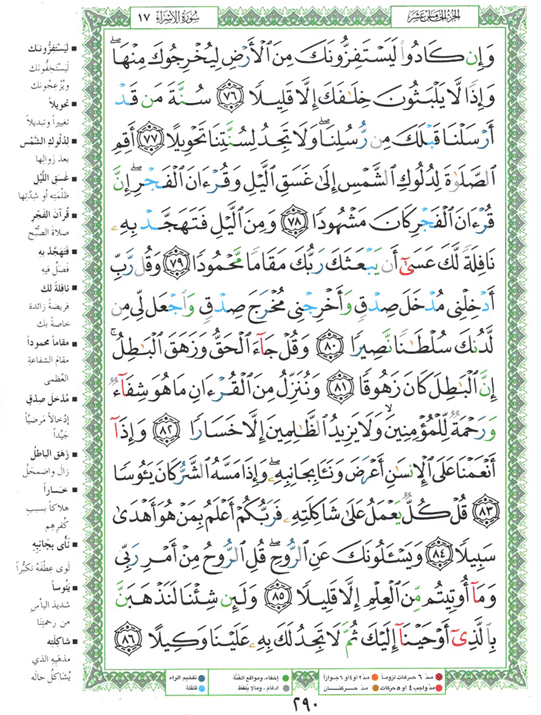 سُورَةُ الإِسْرَاء ١٧
الجزء الخامس عشر
وَإِن كَادُواْ لَيَسْتَفِزُّونَكَ مِنَ ٱلْأَرْضِ لِيُخْرِجُوكَ مِنْهَا ۖ
وَإِذًا لَّا يَلْبَثُونَ خِلَٰفَكَ إِلَّا قَلِيلًا ٧٦ سُنَّةَ مَن قَدْ
أَرْسَلْنَا قَبْلَكَ مِن رُّسُلِنَا ۖ وَلَا تَجِدُ لِسُنَّتِنَا تَحْوِيلًا ٧٧ أَقِمِ
ٱلصَّلَوٰةَ لِدُلُوكِ ٱلشَّمْسِ إِلَىٰ غَسَقِ ٱلَّيْلِ وَقُرْءَانَ ٱلْفَجْرِ ۖ إِنَّ
قُرْءَانَ ٱلْفَجْرِ كَانَ مَشْهُودًا ٧٨ وَمِنَ ٱلَّيْلِ فَتَهَجَّدْ بِهِۦ
نَافِلَةً لَّكَ عَسَىٰٓ أَن يَبْعَثَكَ رَبُّكَ مَقَامًا مَّحْمُودًا ٧٩ وَقُل رَّبِّ
أَدْخِلْنِى مُدْخَلَ صِدْقٍ وَأَخْرِجْنِى مُخْرَجَ صِدْقٍ وَٱجْعَل لِّى مِن
لَّدُنكَ سُلْطَٰنًا نَّصِيرًا ٨٠ وَقُلْ جَآءَ ٱلْحَقُّ وَزَهَقَ ٱلْبَٰطِلُ ۚ
إِنَّ ٱلْبَٰطِلَ كَانَ زَهُوقًا ٨١ وَنُنَزِّلُ مِنَ ٱلْقُرْءَانِ مَا هُوَ شِفَآءٌ
وَرَحْمَةٌ لِّلْمُؤْمِنِينَ ۙ وَلَا يَزِيدُ ٱلظَّٰلِمِينَ إِلَّا خَسَارًا ٨٢ وَإِذَآ
أَنْعَمْنَا عَلَى ٱلْإِنسَٰنِ أَعْرَضَ وَنَـَٔا بِجَانِبِهِۦ ۖ وَإِذَا مَسَّهُ ٱلشَّرُّ كَانَ يَـُٔوسًا
٨٣ قُلْ كُلٌّ يَعْمَلُ عَلَىٰ شَاكِلَتِهِۦ فَرَبُّكُمْ أَعْلَمُ بِمَنْ هُوَ أَهْدَىٰ
سَبِيلًا ٨٤ وَيَسْـَٔلُونَكَ عَنِ ٱلرُّوحِ ۖ قُلِ ٱلرُّوحُ مِنْ أَمْرِ رَبِّى
وَمَآ أُوتِيتُم مِّنَ ٱلْعِلْمِ إِلَّا قَلِيلًا ٨٥ وَلَئِن شِئْنَا لَنَذْهَبَنَّ
بِٱلَّذِىٓ أَوْحَيْنَآ إِلَيْكَ ثُمَّ لَا تَجِدُ لَكَ بِهِۦ عَلَيْنَا وَكِيلًا ٨٦
لَيَسْتَفِزُّونَكَ
لَيَسْتَخِفُّونَكَ
ويُزْعِجُونَك
تحويلاً
تغييراً وتبديلاً
لِدُلُوكِ الشَّمْس
بعد زوالها
غَسَقِ اللَّيْل
ظُلْمَتِه أو شِدَّتِها
قُرْآنَ الفَجْر
صلاةَ الصُّبْح
فَتَهَجَّدْ به
فَصَلِّ فيه
نافِلةً لك
فريضةً زائدة
خاصةً بك
مقاماً محموداً
مقامَ الشفاعةِ
العُظمى
مُدخَلَ صِدْقٍ
إدْخالاً مَرْضِيّاً
جَيِّداً
زَهَقَ الباطِلُ
زال واضمحلّ
خَسَاراً
هلاكاً بسببِ
كُفرِهِم
نَأَى بِجَانِبِهِ
لَوى عِطْفَهُ تكبُّراً
يَئُوساً
شديدَ اليأسِ
من رحمتِنا
شاكِلَتِه
مذهَبِهِ الذي
يُشاكِلُ حالَه
مدّ ٦ حركات لزوماً
مدّ ٢ أو ٤ أو ٦ جوازاً
إخفاء، ومواقع الغُنَّة
تفخيم الراء
مدّ واجب ٤ أو ٥ حركات
مدّ حركتان
ادغام ، ومالا يُلفَظ
قلقلة
٢٩٠